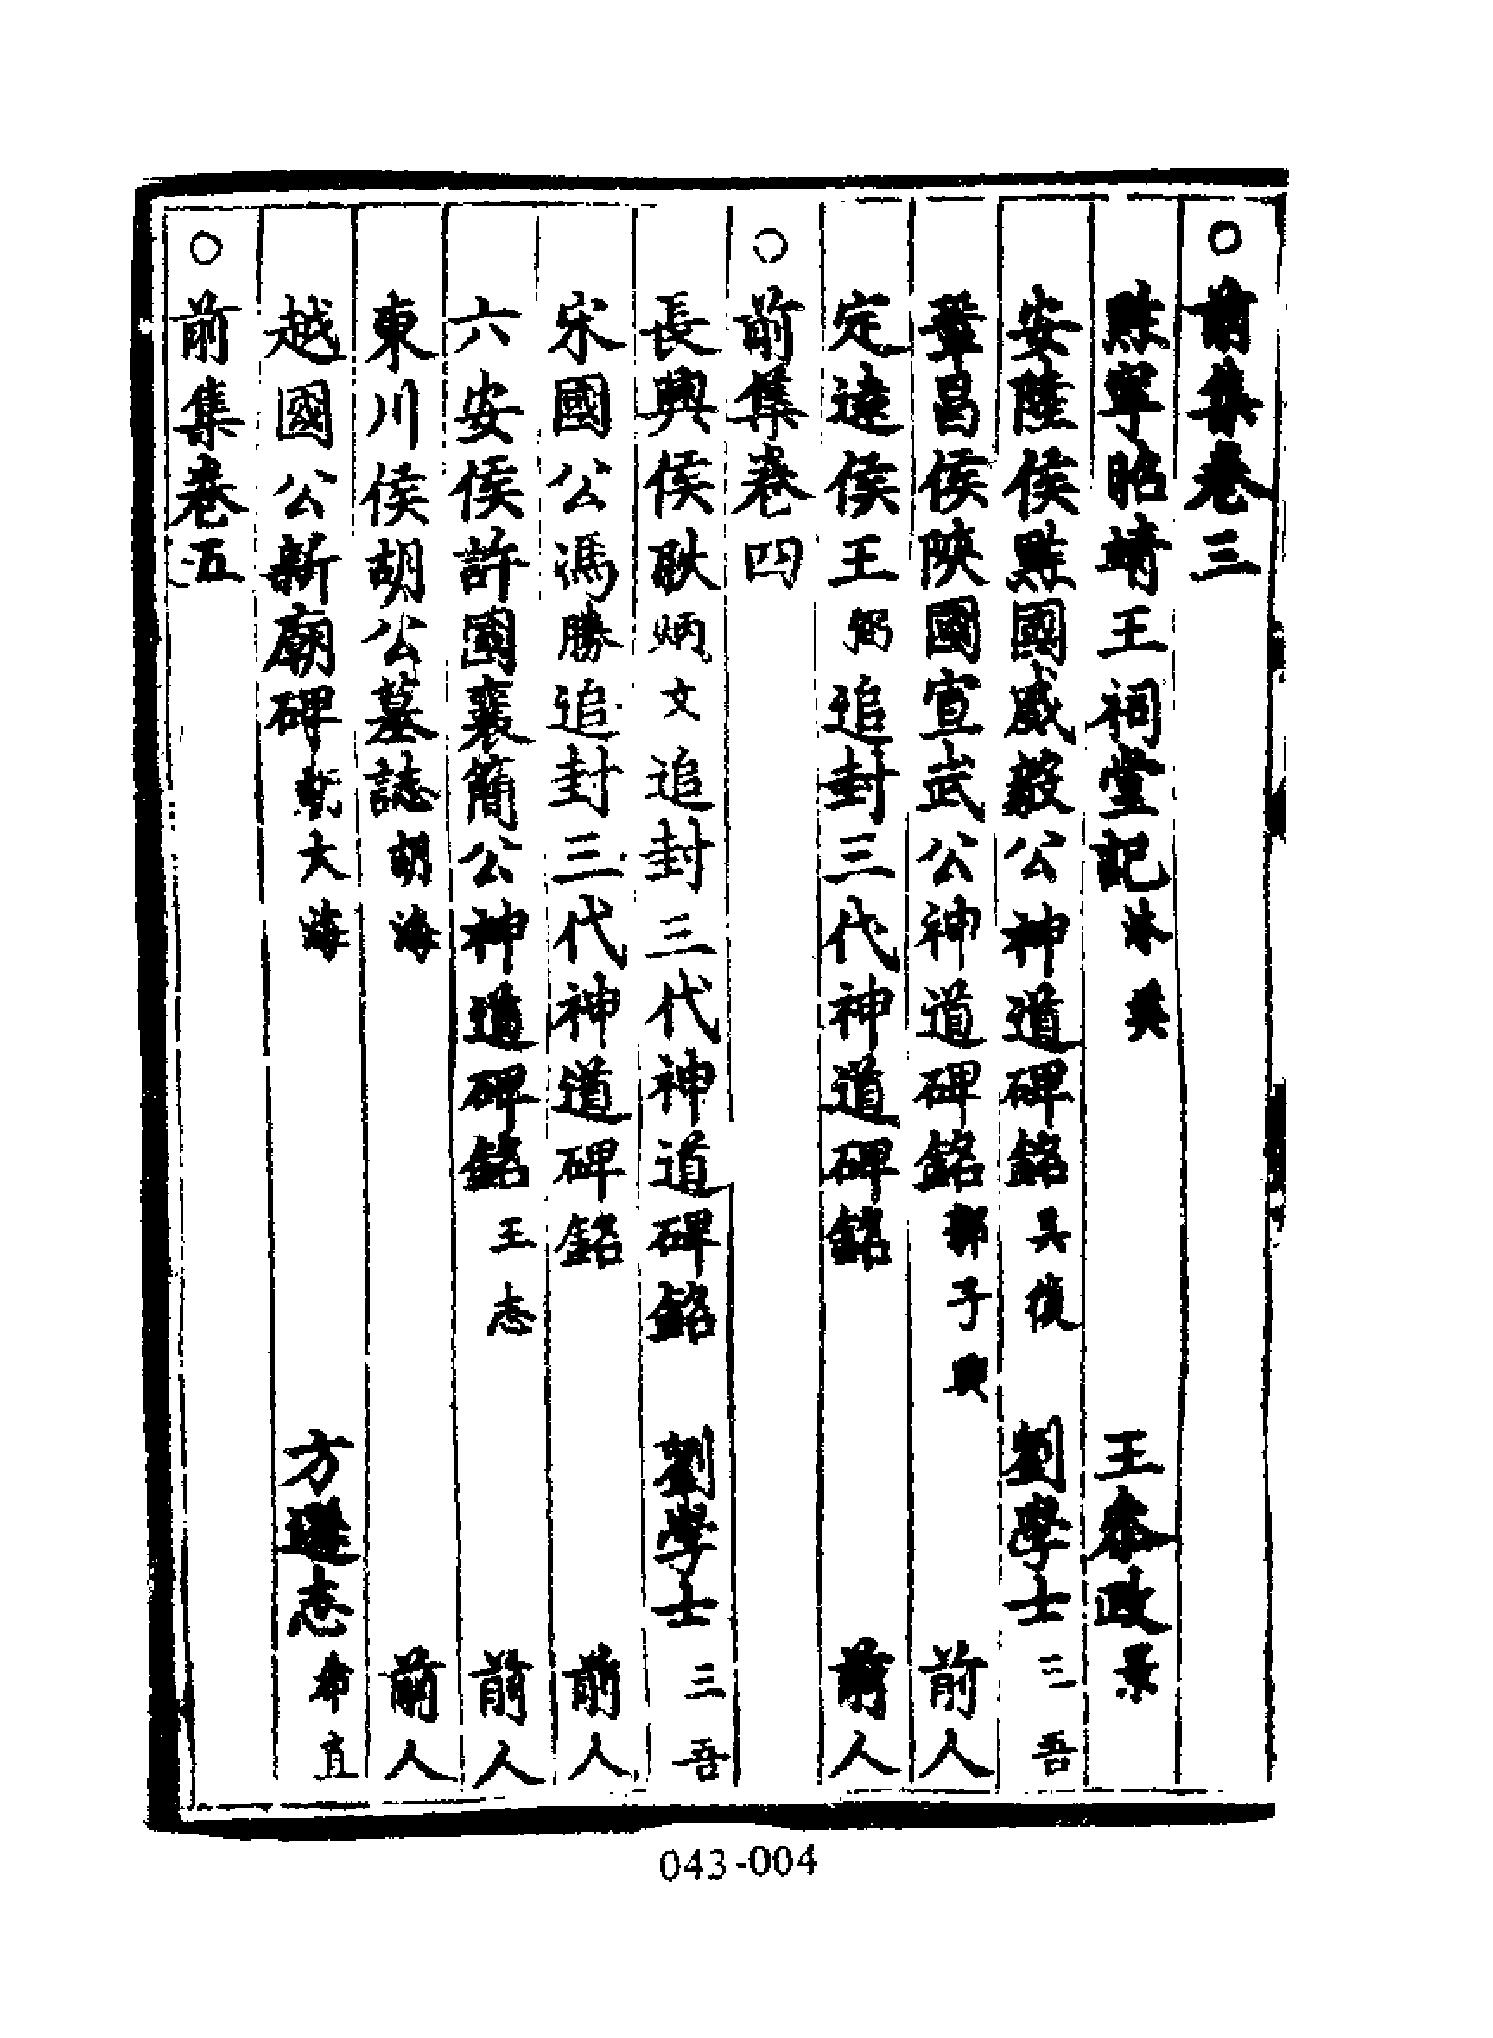 ○前集卷三
黔寧昭靖王祠堂記沐英 王叅政景
安陸侯黔國威毅公神道碑銘吳復 劉學士三吾
鞏昌侯陝國宣武公神道碑銘郭子興 前人
定遠侯王弼追封三代神道碑銘 前人
○前集卷四
長興侯耿炳文追封三代神道碑銘 劉學士三吾
宋國公馮勝追封三代神道碑銘 前人
六安侯許國襄簡公神道碑銘王志 前人
東川侯胡公墓誌胡海 前人
越國公新廟碑大海 方遜志希直
○前集卷五
043-004